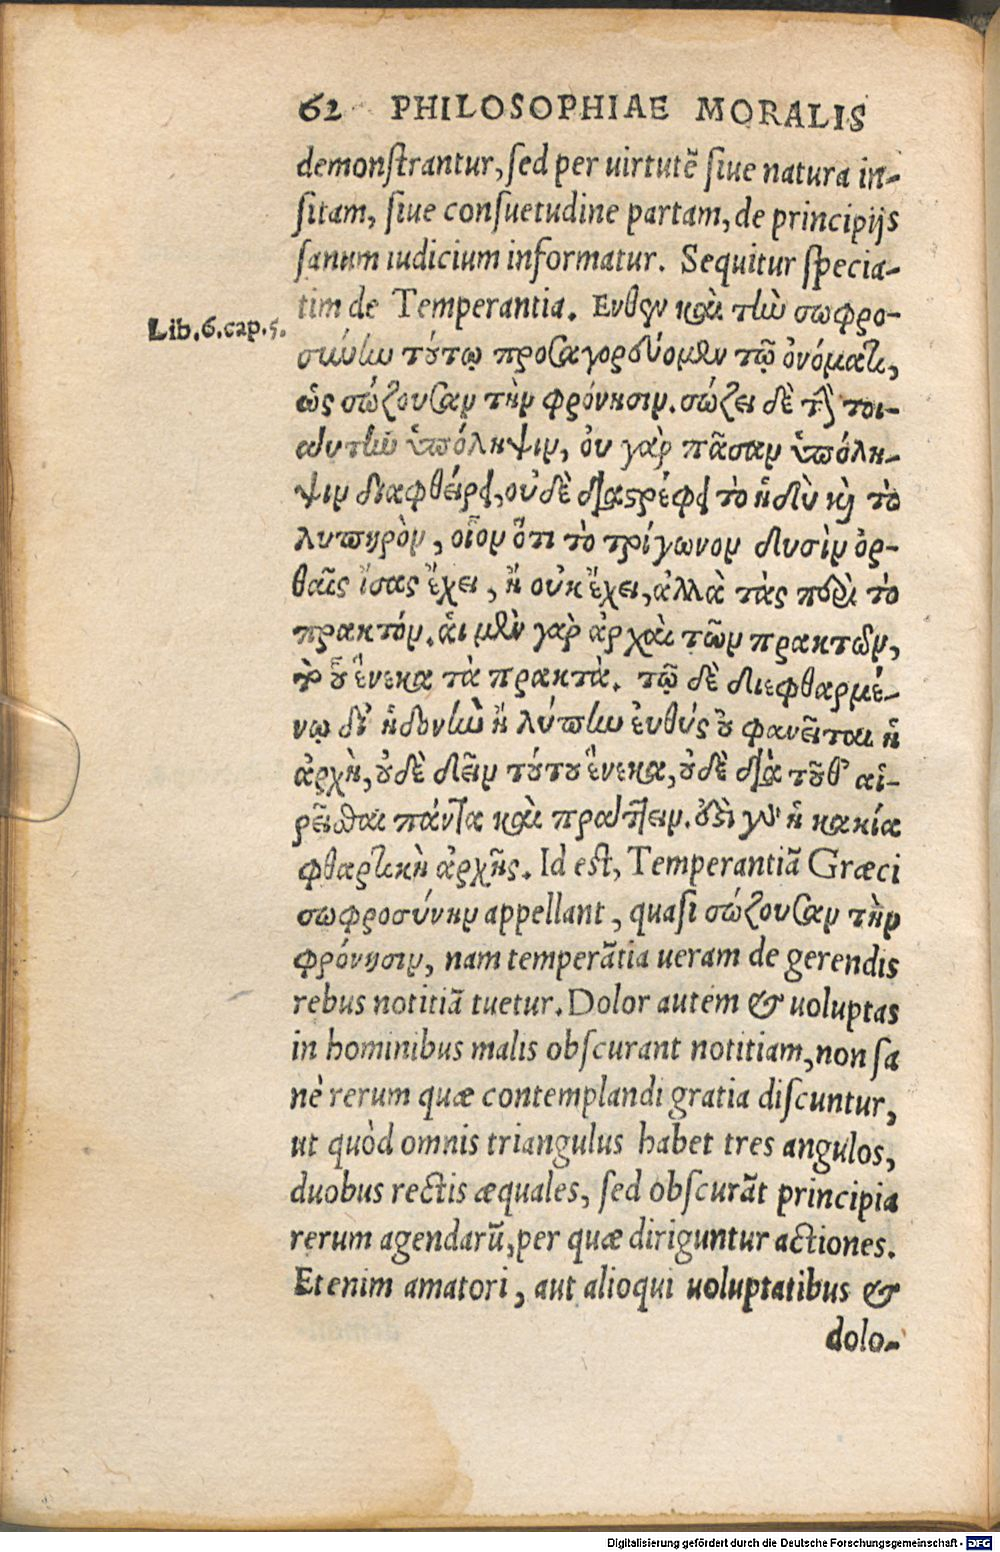 62 PHILOSOPHIAE MORALIS
demonſtrantur, ſed per uirtutẽ ſiue natura in-
ſitam, ſiue conſuetudine partam, de principijs
ſanum iudicium informatur. Sequitur ſpecia-
tim de Temperantia. Ενθεν καὶ τὴν σωφρο-
Lib.6.cap.5.
σύνην τούτῳ προσαγορεύομεν τῷ ὀνόματι,
ὡς σώζουσαν τὴν φρόνησιν. σώζει δὲ τὴν τοι-
αύτην ὑπόληψιν, ου γὰρ πᾶσαν ὑπόλη-
ψιν διαφθείρει, ουδὲ διαστρέφει τὸ ἡδὺ καὶ τὸ
λυπηρὸν, οἷον ὅτι τὸ τρίγωνον δυσὶν ὀρ-
θαῖς ἴσας ἔχει, ἢ ουκ ἔχει, ἀλλὰ τὰς περὶ τὸ
πρακτόν. ἁι μὲν γὰρ ἀρχαὶ τῶν πρακτῶν,
τὸ οὗ ἕνεκα τὰ πρακτὰ. τῷ δὲ διεφθαρμέ-
νῳ δι ἡδονὴν ἢ λύπην ἐυθύς ὀυ φανεῖται ἡ
ἀρχὴ, ὀυδὲ δεῖν τούτου ἕνεκα, ὀυδὲ διὰ τοῦθ' αἱ-
ρεῖσθαι πάντα καὶ πράττειν. ὀυδὲ γὰρ ἡ κακία
φθαρτικὴ ἀρχῆς. Id eſt, Temperantiã Græci
σωφροσύνην appellant, quaſi σώζουσαν τὴν
φρόνησιν, nam temperãtia ueram de gerendis
rebus notitiã tuetur. Dolor autem & uoluptas
in hominibus malis obſcurant notitiam, non ſa
nè rerum quæ contemplandi gratia diſcuntur,
ut quòd omnis triangulus habet tres angulos,
duobus rectis æquales, ſed obſcurãt principia
rerum agendarũ, per quæ diriguntur actiones.
Etenim amatori, aut alioqui uoluptatibus &
dolo-
Digitalisierung gefördert durch die Deutsche Forschungsgemeinschaft - DFG